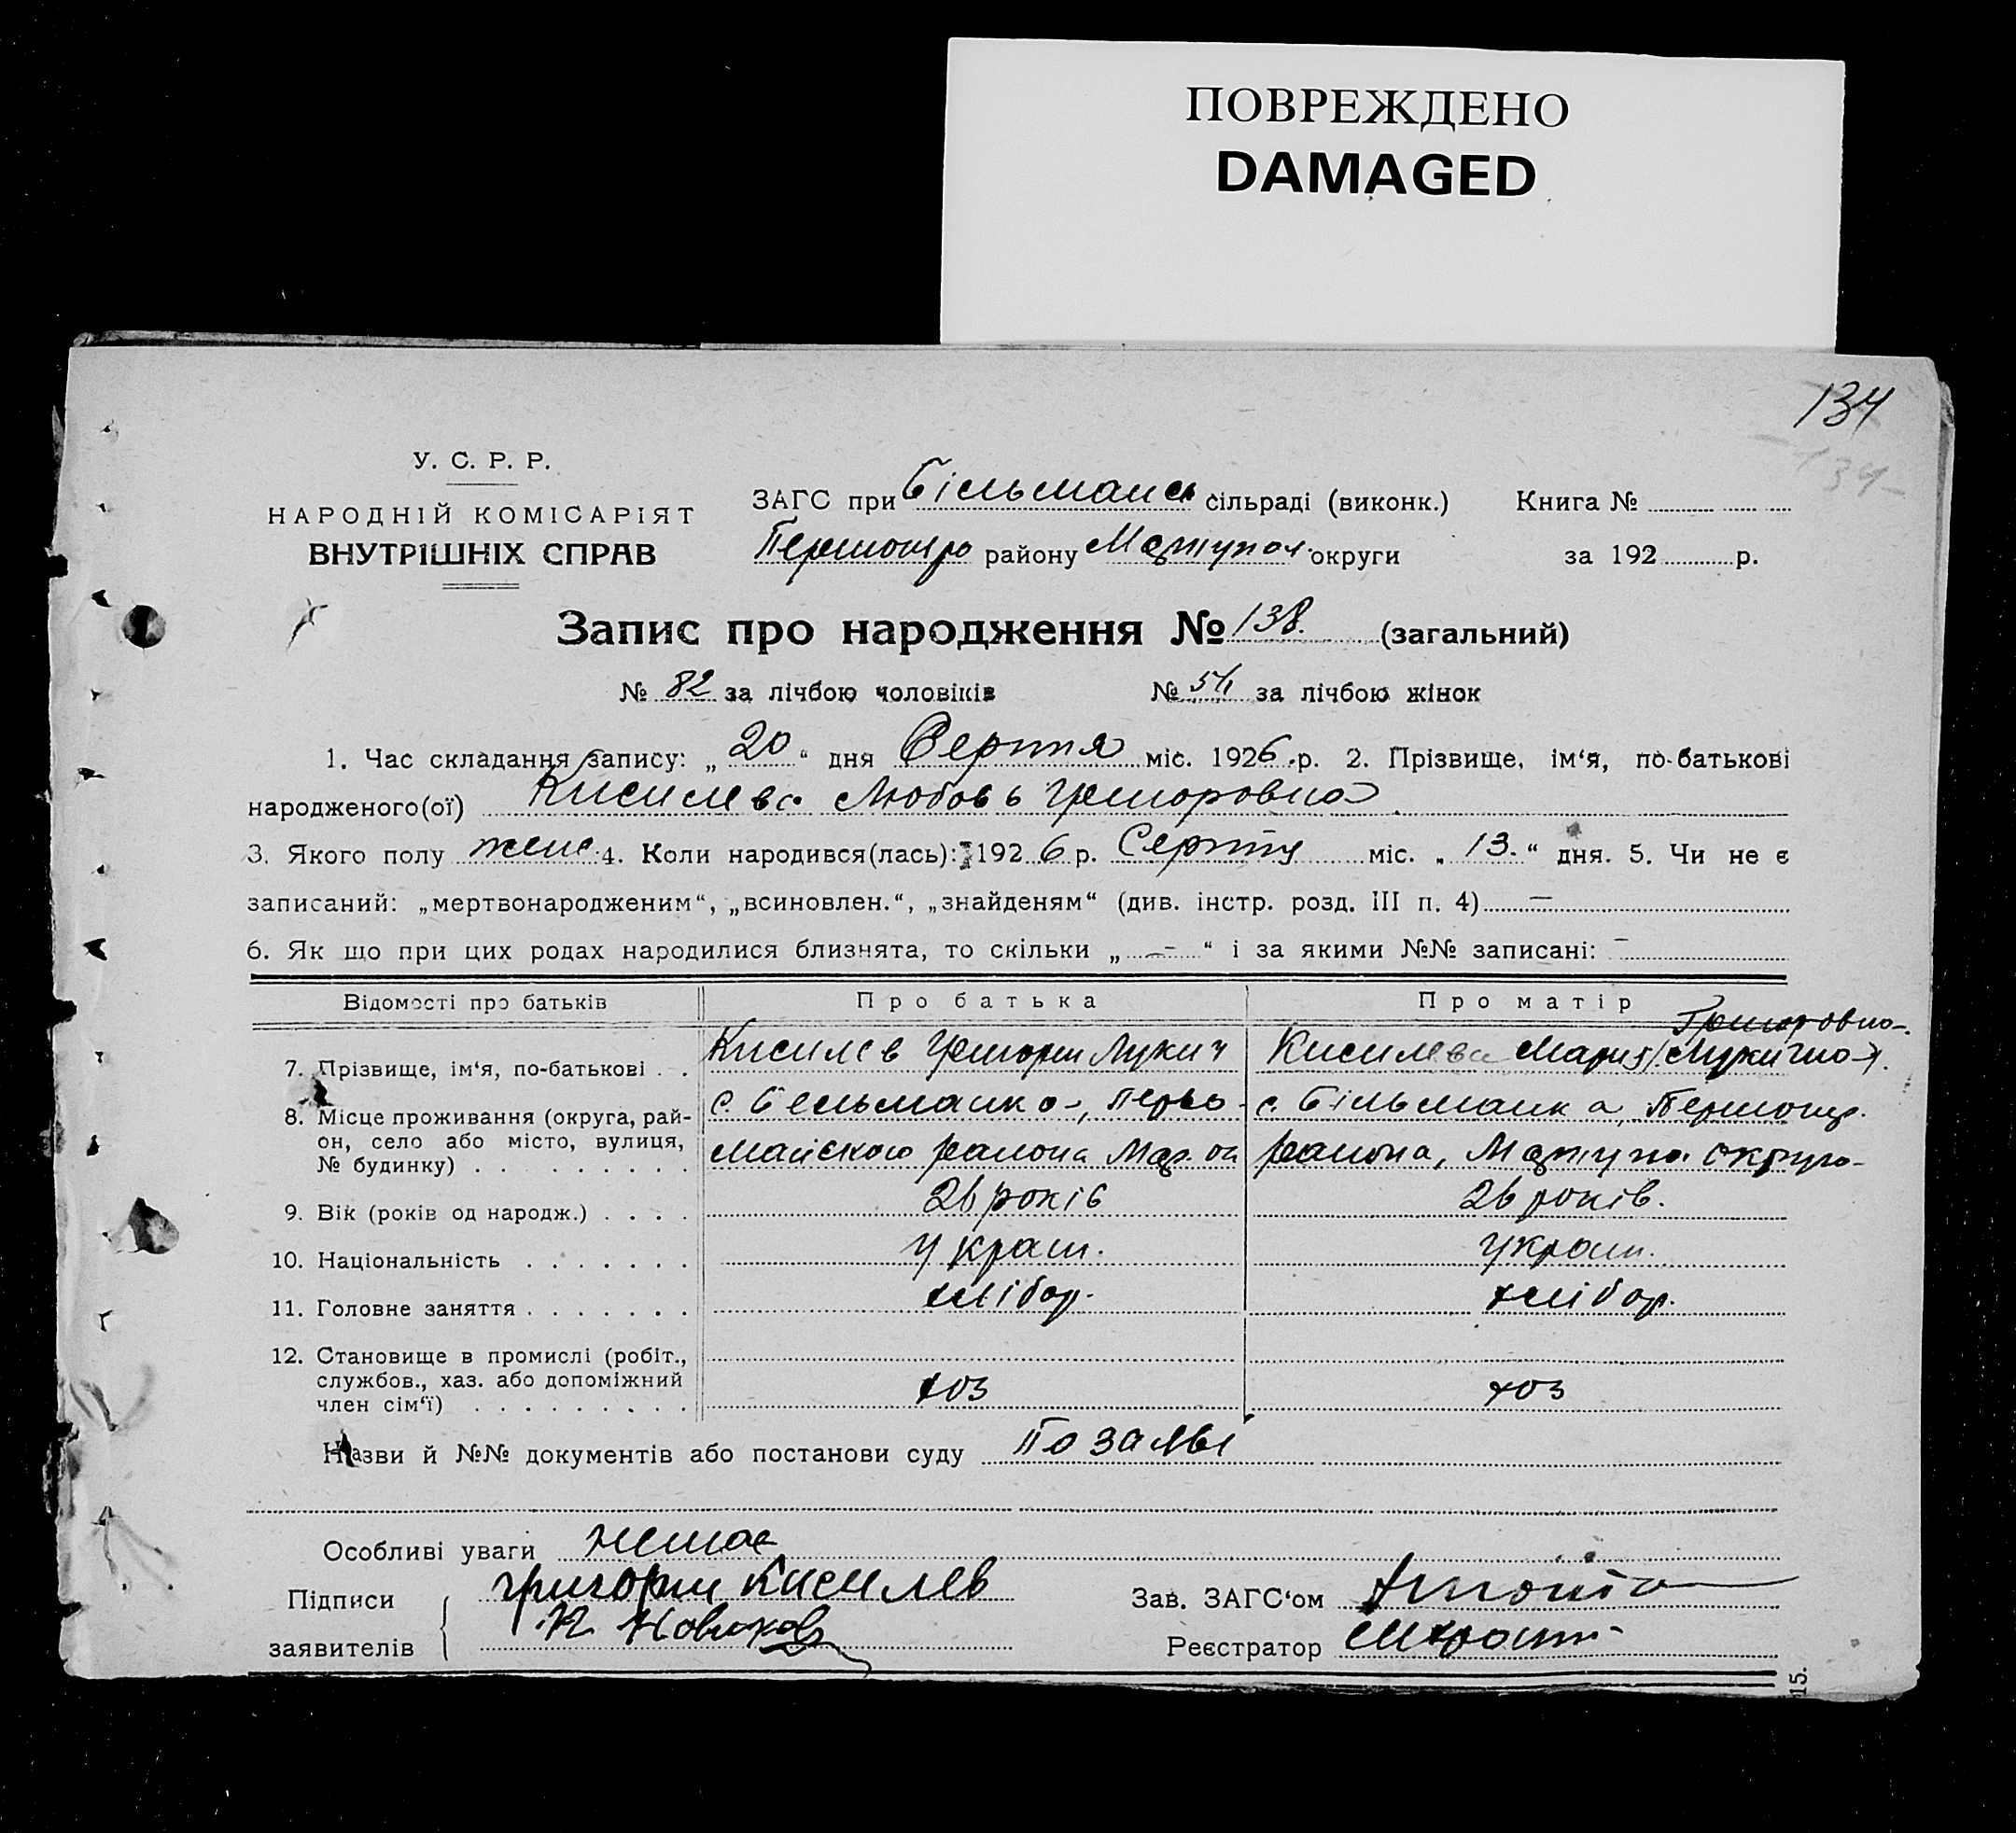 ПОВРЕЖДЕНО
DAMAGED
134
134
У. С. Р. Р.
НАРОДНІЙ КОМІСАРІЯТ
ВНУТРІШНІХ СПРАВ
ЗАГС при Більманськ сільраді (виконк.) Книга №
Першотр району Маріупол. округи за 192 р.
Запис про народження № 138. (загальний)
№ 82 за лічбою чоловіків № 54 за лічбою жінок
1. Час складання запису: „ 20 “ дня Серпня міс. 1926.р. 2. Прізвище, ім‘я, по-батькові
народженого(ої) Кисилева Любовь Григоровна
3. Якого полу жен 4. Коли народився(лась): 1926 р. Серпня міс. „ 13. “ дня. 5. Чи не є
записаний: „мертвонародженим“, „всиновлен.“, „знайденям“ (див. інстр. розд. III п. 4) —
6. Як що при цих родах народилися близнята, то скільки „ — “ і за якими №№ записані: —
Відомості про батьків Про батька Про матір
Григоровна
7. Прізвище, ім‘я, по-батькові . . Кисилев Григорий Лукич Кисилева Мария (Лукична).
8. Місце проживання (округа, рай-
он, село або місто, вулиця,
№ будинку) . . . . . . . . . с. Бельманка, Перво-
майского района Мар. ок
с. Більманка, Першотр.
района, Маріупол. округа
9. Вік (років од народж.) . . . . 26 років 26 років.
10. Національність . . . . . . . Украін. Украін.
11. Головне заняття . . . . . . . хлібор. хлібор.
12. Становище в промислі (робіт.,
службов., хаз. або допоміжний
член сім‘ї) . . . . . . . . . хоз хоз
Назви й №№ документів або постанови суду По заяві
Особливі уваги немає
Підписи
заявителів
Григорий Кисилев
Новиков
Зав. ЗАГС‘ом
Реєстратор
15.